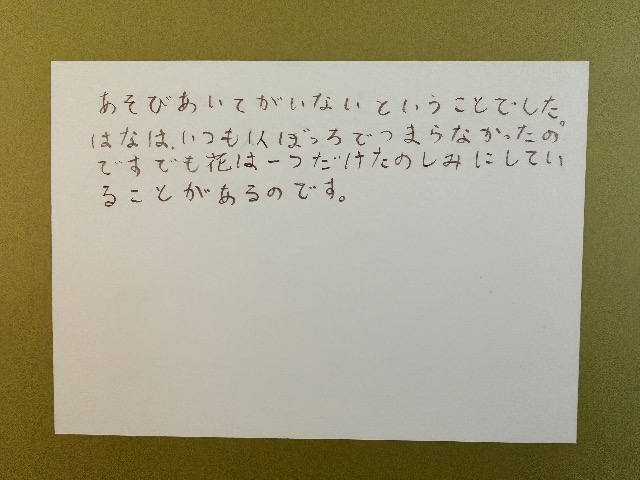 あそびあいてがいないということでした。
はなは、いつも1人ぼっちでつまらなかったの
ですでも花は一つだけたのしみにしてい
ることがあるのです。